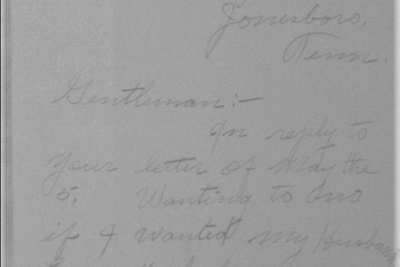 Jonesboro,
Tenn.
Gentleman:-
In reply to
your letter of May the
5. Wanting to kno
if I wanted my Husband